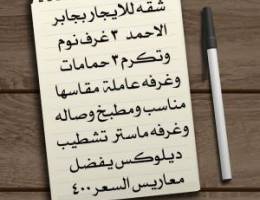 شقه للايجار بجابر
الاحمد ٣ غرف نوم
وتكرم ٣ حمامات
وغرفه عاملة مقاسها
مناسب ومطبخ وصاله
وغرفه ماستر تشطيب
ديلوكس يفضل
معاريس السعر ٤٠٠